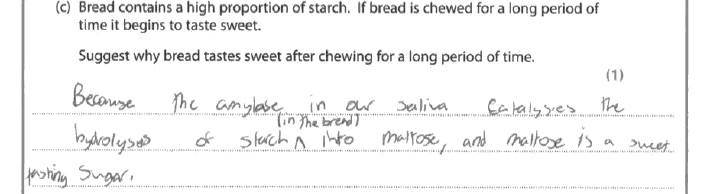 (c) Bread contains a high proportion of starch. If bread is chewed for a long period of
time it begins to taste sweet.
Suggest why bread tastes sweet after chewing for a long period of time.
(1)
Because the amylase in our saliva catalyses the
(in the bread)
hydrolyses of starch ∧ into maltose, and maltose is a sweet
tasting sugar.